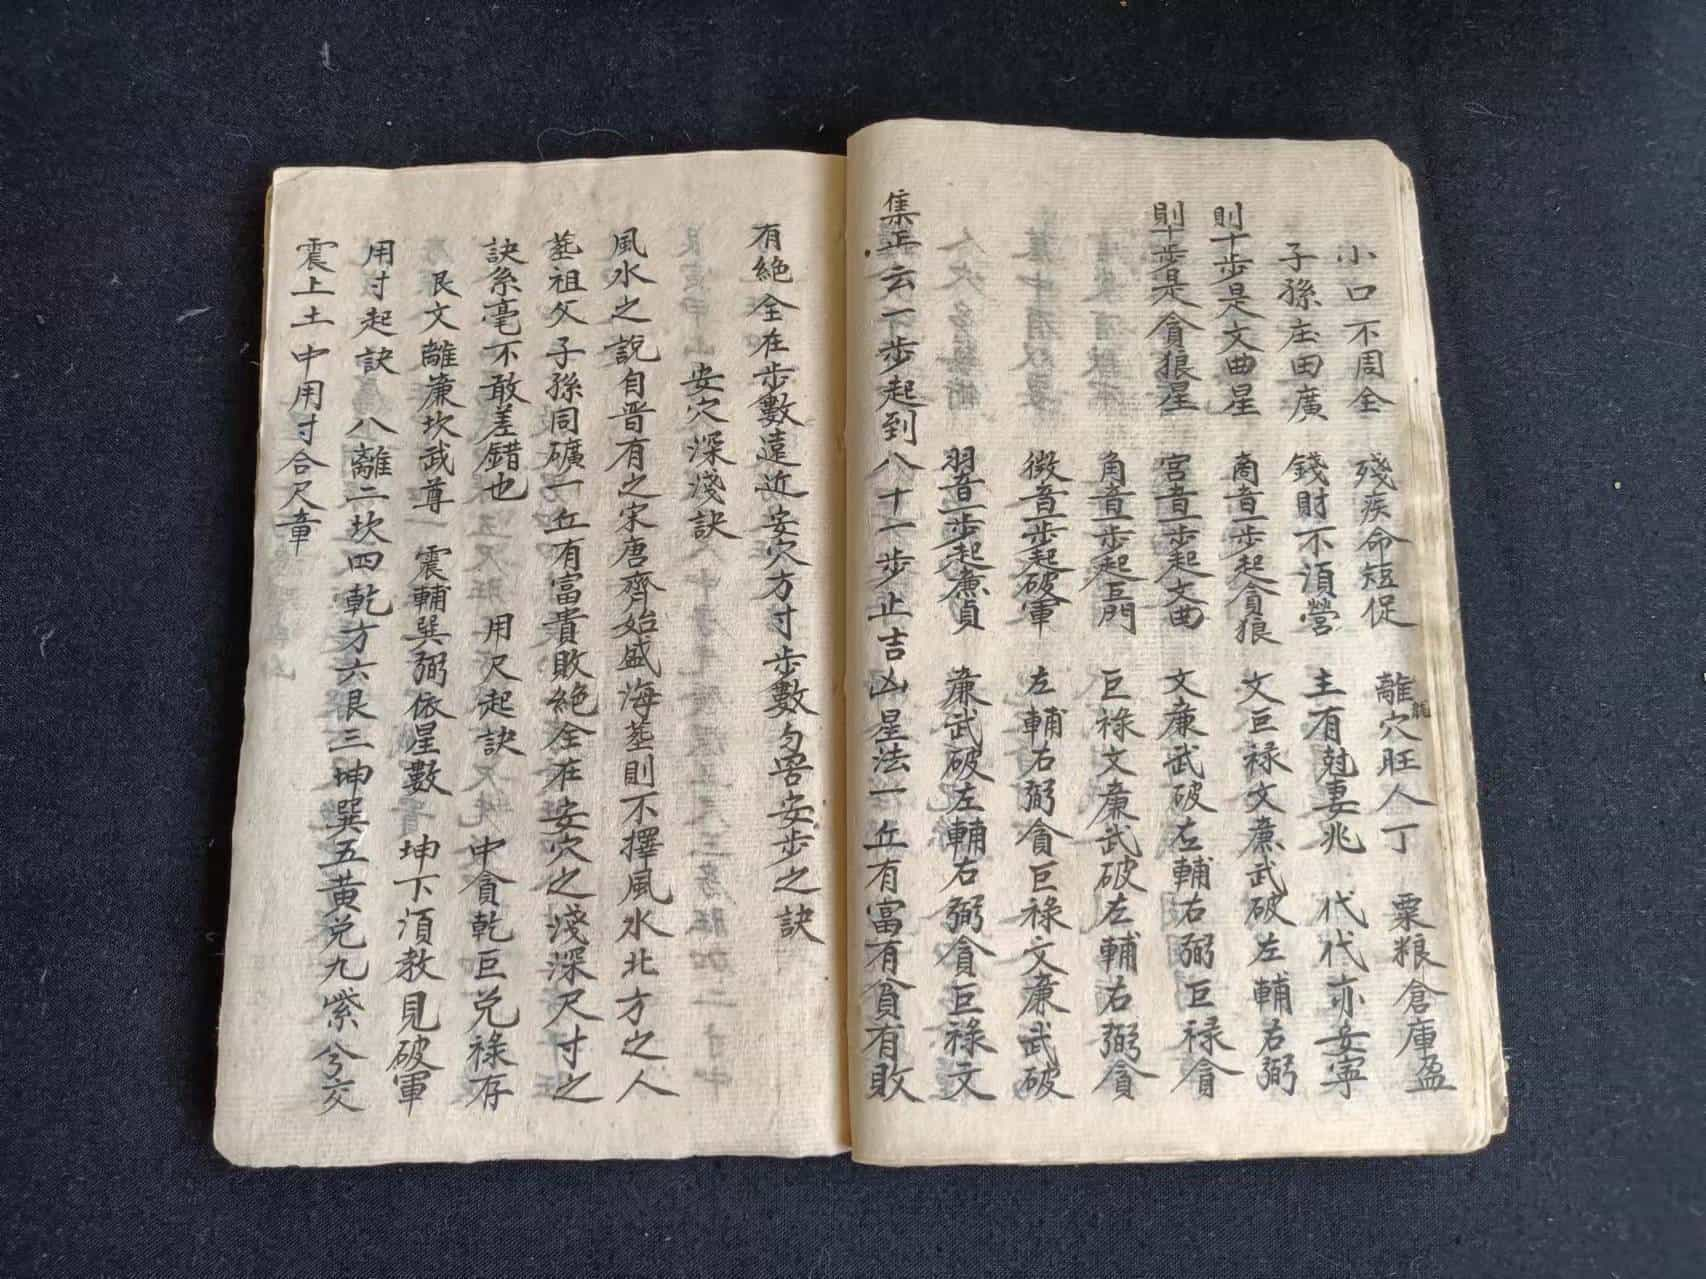 小口不周全 殘疾命短促 離穴旺人丁 粟粮倉庫盈
子孫庄田廣 錢財不湏營 主有尅妻兆 代代亦安寧
則十步是文曲星 商音一步起貪狼 文巨禄文廉武破左輔右弼
則十步是貪狼星 宮音一步起文曲 文廉武破左輔右弼巨禄貪
角音一步起巨門 巨禄文廉武破左輔右弼貪
徵音一步起破軍 左輔右弼貪巨禄文廉武破
羽音一步起廉貞 廉武破左輔右弼貪巨禄文
集正云一步起到八十一步止吉凶星法一丘有富有貧有敗
有絶全在步數遠近安穴方寸步數勾呂安步之訣
安穴深淺訣
風水之說自晋有之宋唐齊始盛海塟則不擇風水北方之人
塟祖父子孫同礦一丘有富貴敗絶全在安穴之淺深尺寸之
訣糸毫不敢差錯也 用尺起訣 中貪乾巨兑祿存
艮文離廉坎武尊 震輔巽弼依星數 坤下湏教見破軍
用寸起訣 八離二坎四乾方六艮三坤巽五黄兑九紫兮交
震上土中用寸合尺章